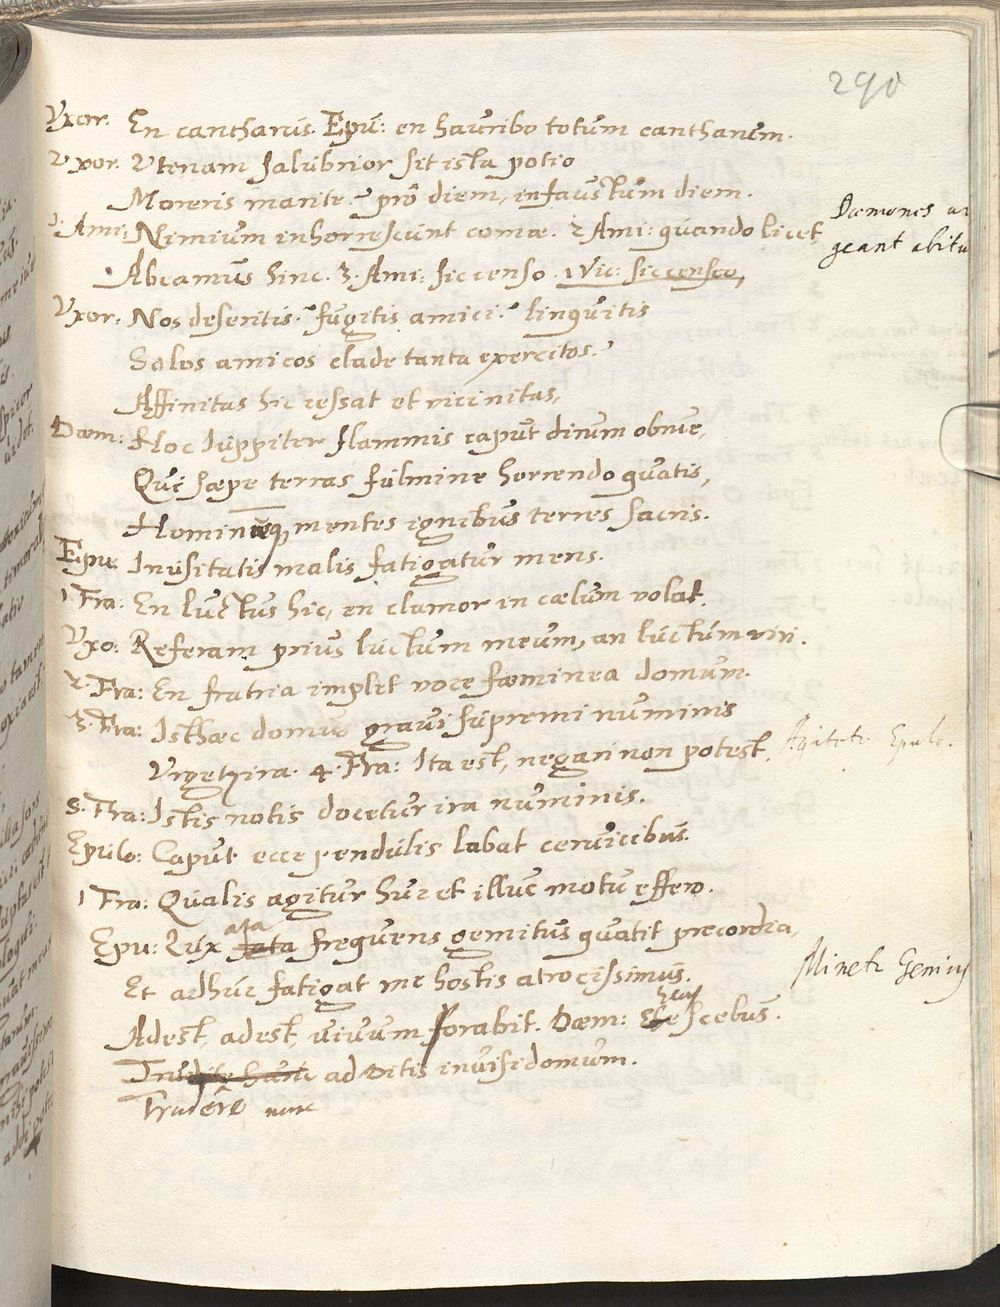 290
Vxor. En cantharus. Epu: en hauribo totum cantharum.
Vxor. Vtinam salubrior sit ista potio
Moreris marite? prô diem, infaustum diem.
1. Ami: Nimium inhorrescunt comæ. 2 Ami: quando licet
Dæmones ur
geant abitu
Abeamus hinc. 3. Ami: sic censo. 1 Vic: sic censeo,
Vxor. Nos deseritis? fugitis amici? linquitis
Solos amicos clade tanta exercitos?
Affinitas hic cessat et vicinitas,
Dæm: Hoc Iuppiter flammis caput dirum obrue,
Qui sæpe terras fulmine horrendo quatis,
Hominumq, mentes ignibus terres sacris.
Epu: Inusitatis malis fatigatur mens.
1 Fra: En luctus hic, en clamor in cælum volat.
Vxo: Referam prius luctum meum, an luctum viri.
2. Fra: En fratria implet voce fæminea domum.
3. Fra: Isthæc domus gravis supremi numinis
Vrgetr ira. 4. Fra: Ita est, negari non potest.
Agitetr Epulo.
5. Fra: Istis notis docetur ira numinis.
Epulo: Caput ecce pendulis labat cervicibus.
1 Fra: Qualis agitur huc et illuc motu effero.
Epu: Lux fata frequens gemitus quatit precordia,
Et adhuc fatigat me hostis atrocissimus.
Minetr Genius
Adest, adest, vivum forabit. Dæm: scebus.
hunc ad Ditis invisi domum.
Trudere nunc